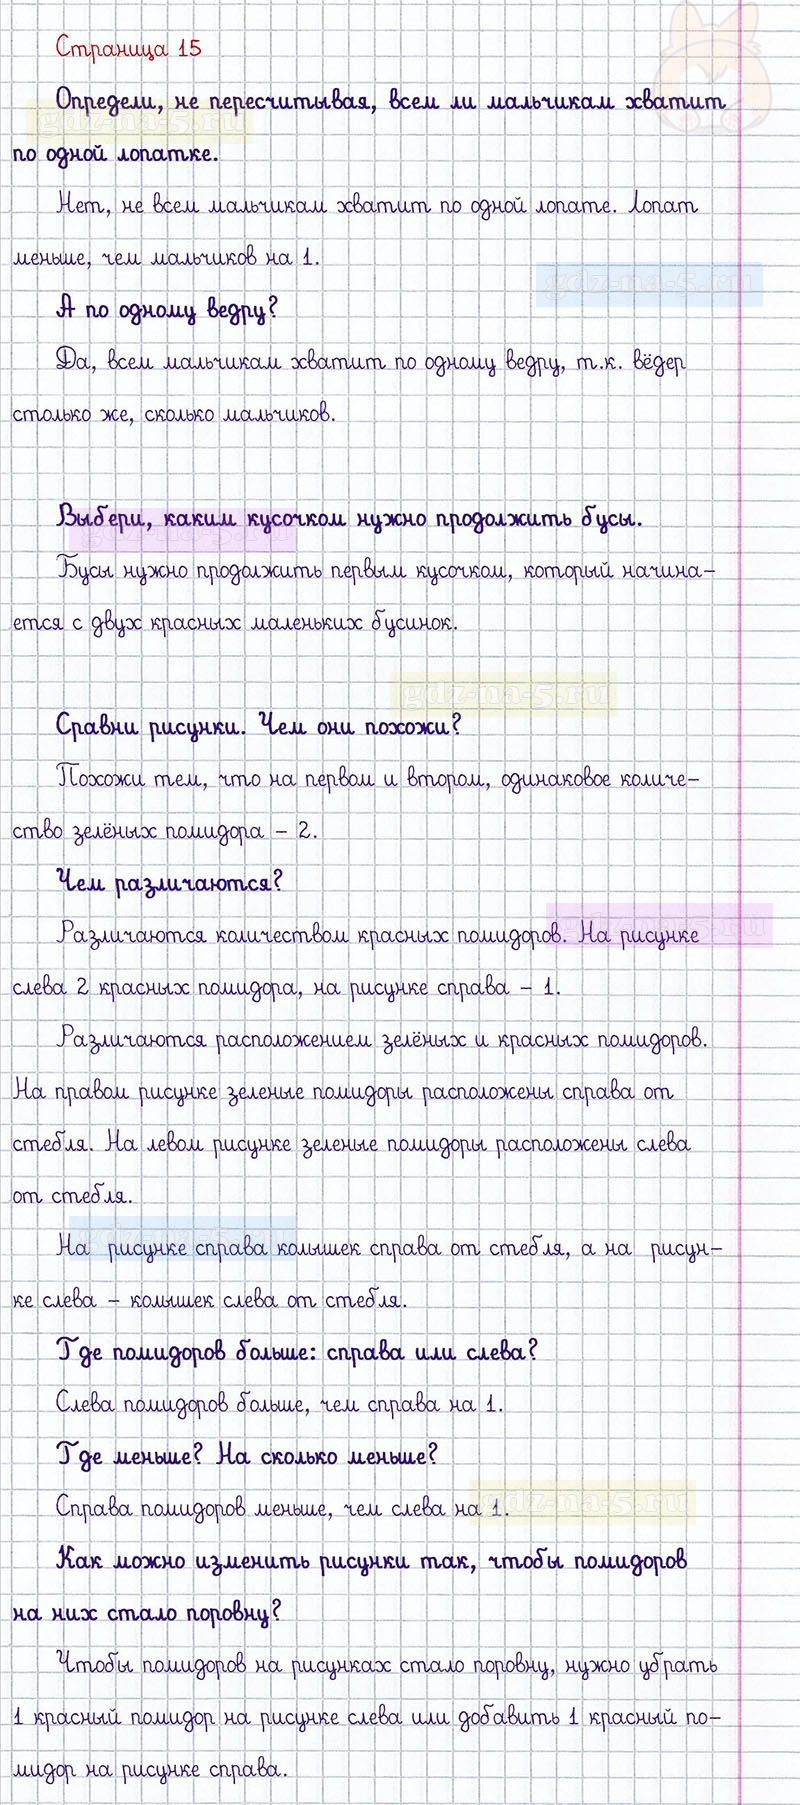 Страница 15
Определи, не пересчитывая, всем ли мальчикам хватит
по одной лопатке.
Нет, не всем мальчикам хватит по одной лопате. Лопат
меньше, чем мальчиков на 1.
А по одному ведру?
Да, всем мальчикам хватит по одному ведру, т.к. вёдер
столько же, сколько мальчиков.
Выбери, каким кусочком нужно продолжить бусы.
Бусы нужно продолжить первым кусочком, который начина-
ется с двух красных маленьких бусинок.
Сравни рисунки. Чем они похожи?
Похожи тем, что на первом и втором, одинаковое количе-
ство зелёных помидора - 2.
Чем различаются?
Различаются количеством красных помидоров. На рисунке
слева 2 красных помидора, на рисунке справа - 1.
Различаются расположением зелёных и красных помидоров.
На правом рисунке зеленые помидоры расположены справа от
стебля. На левом рисунке зеленые помидоры расположены слева
от стебля.
На рисунке справа колышек справа от стебля, а на рисун-
ке слева - колышек слева от стебля.
Где помидоров больше: справа или слева?
Слева помидоров больше, чем справа на 1.
Где меньше? На сколько меньше?
Справа помидоров меньше, чем слева на 1.
Как можно изменить рисунки так, чтобы помидоров
на них стало поровну?
Чтобы помидоров на рисунках стало поровну, нужно убрать
1 красный помидор на рисунке слева или добавить 1 красный по-
мидор на рисунке справа.
gdz-na-5.ru
gdz-na-5.ru
gdz-na-5.ru
gdz-na-5.ru
gdz-na-5.ru
gdz-na-5.ru
gdz-na-5.ru